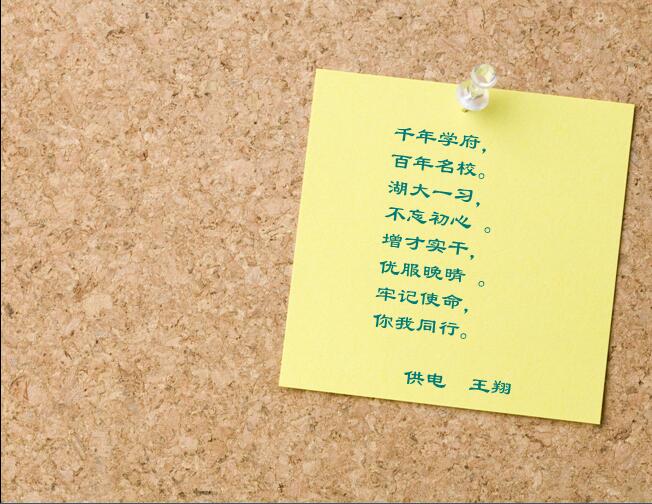 千年学府，
百年名校。
湖大一习，
不忘初心 。
增才实干，
优服晚晴 。
牢记使命，
你我同行。
供电 王翔